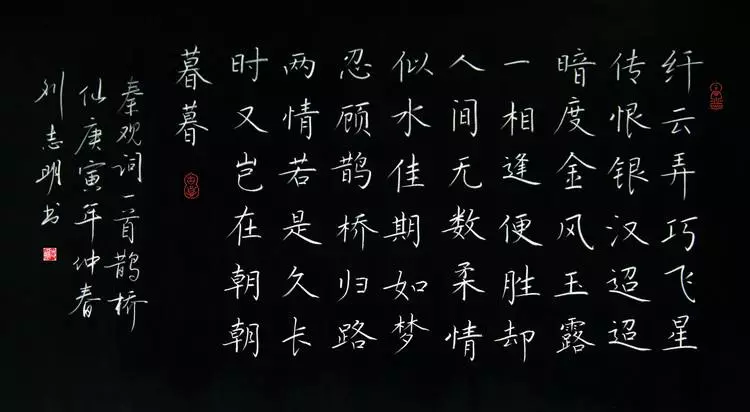 纤云弄巧飞星
传恨银汉迢迢
暗度金风玉露
一相逢便胜却
人间无数柔情
似水佳期如梦
忍顾鹊桥归路
两情若是久长
时又岂在朝朝
暮暮
秦观词一首鹊桥
仙庚寅年仲春
刘志明书